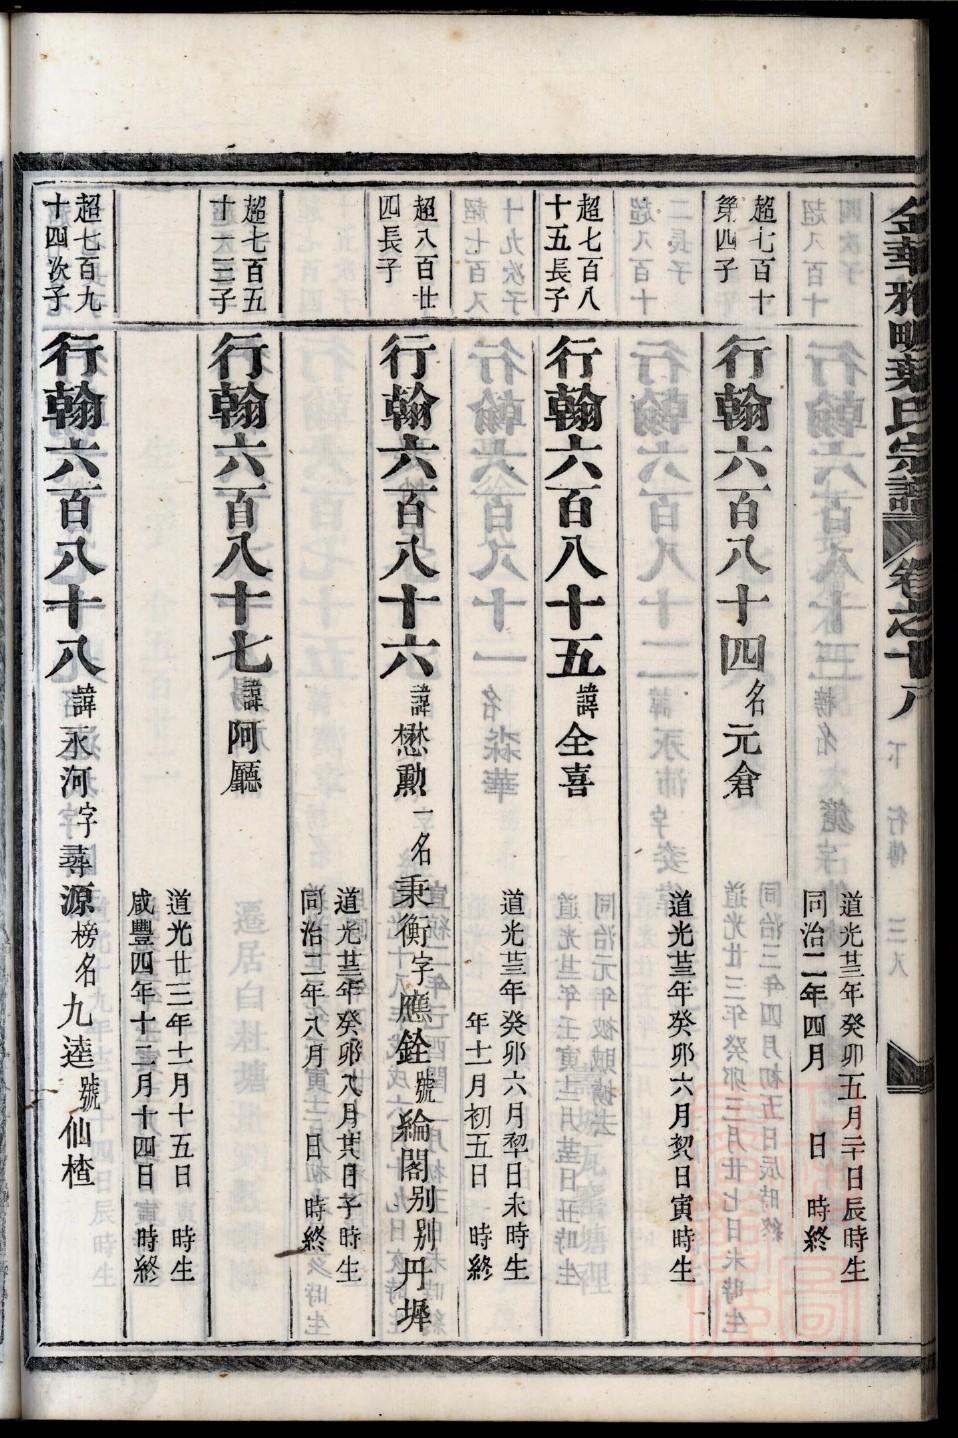 金華雅畈葉氏宗譜 卷之十八
超七百十
第四子
行翰六百八十四名元倉
道光廿三年癸卯五月二十日辰時生
同治二年四月 日 時終
超七百八
十五長子
行翰六百八十五諱全喜
道光廿三年癸卯六月初三日寅時生
超八百廿
四長子
行翰六百八十六諱懋勲一名秉衡字應銓號綸閣别别丹墀
道光廿三年癸卯六月 日未時生
年十二月初五日 時終
超七百五
十三三子
行翰六百八十七諱阿廳
道光廿三年癸卯八月 日子時生
同治二年八月 日 時終
超七百九
十四次子
行翰六百八十八諱永河字尋源榜名九逵號仙楂
道光廿三年十一月十五日 時生
咸豐四年十二月十四日 時終